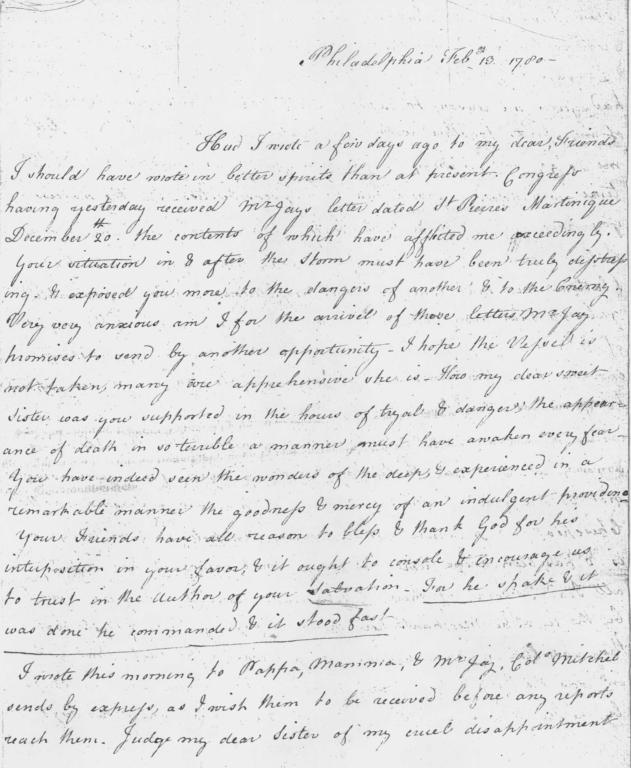 Philadelphia Feb.y 13. 1780-
Had I wrote a few days ago to my dear Friends
I should have wrote in better spirits than at present. Congress
having yesterday received Mr Jays letter dated St Pierres Martinique
December 20th. the contents of which have afflicted me exceedingly.
Your situation in & after the storm must have been truly distress
ing. & exposed you more to the dangers of another & to the Enemy.
Very very anxious am I for the arrival of those letters Mr Jay
promises to send by another opportunity - I hope the Vessel is
not taken, many are apprehensive she is - How my dear sweet
Sister was you supported in the hours of tryal & danger; the appear-
ance of death in so terrible a manner must have awaken every fear-
You have indeed seen the wonders of the deep, & experienced in a
remarkable manner the goodness & mercy of an indulgent providence
Your Friends have all reason to bless & thank God for his
interposition in your favor; & it ought to console & encourage us
to trust in the Author of your Salvation - For he spake & it
was done he commanded & it stood fast
I wrote this morning to Pappa, Mamma, & Mr Jay, Colo Mitchel
sends by express, as I wish them to be received before any reports
reach them. Judge my dear Sister of my cruel disappointment